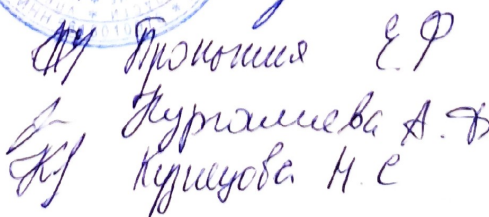 Пронькина Е.Ф
Нургалиева А.Ф
Кузнецова Н.С